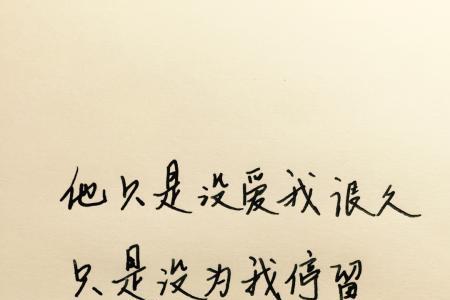 他只是没爱我很久
只是没为我停留